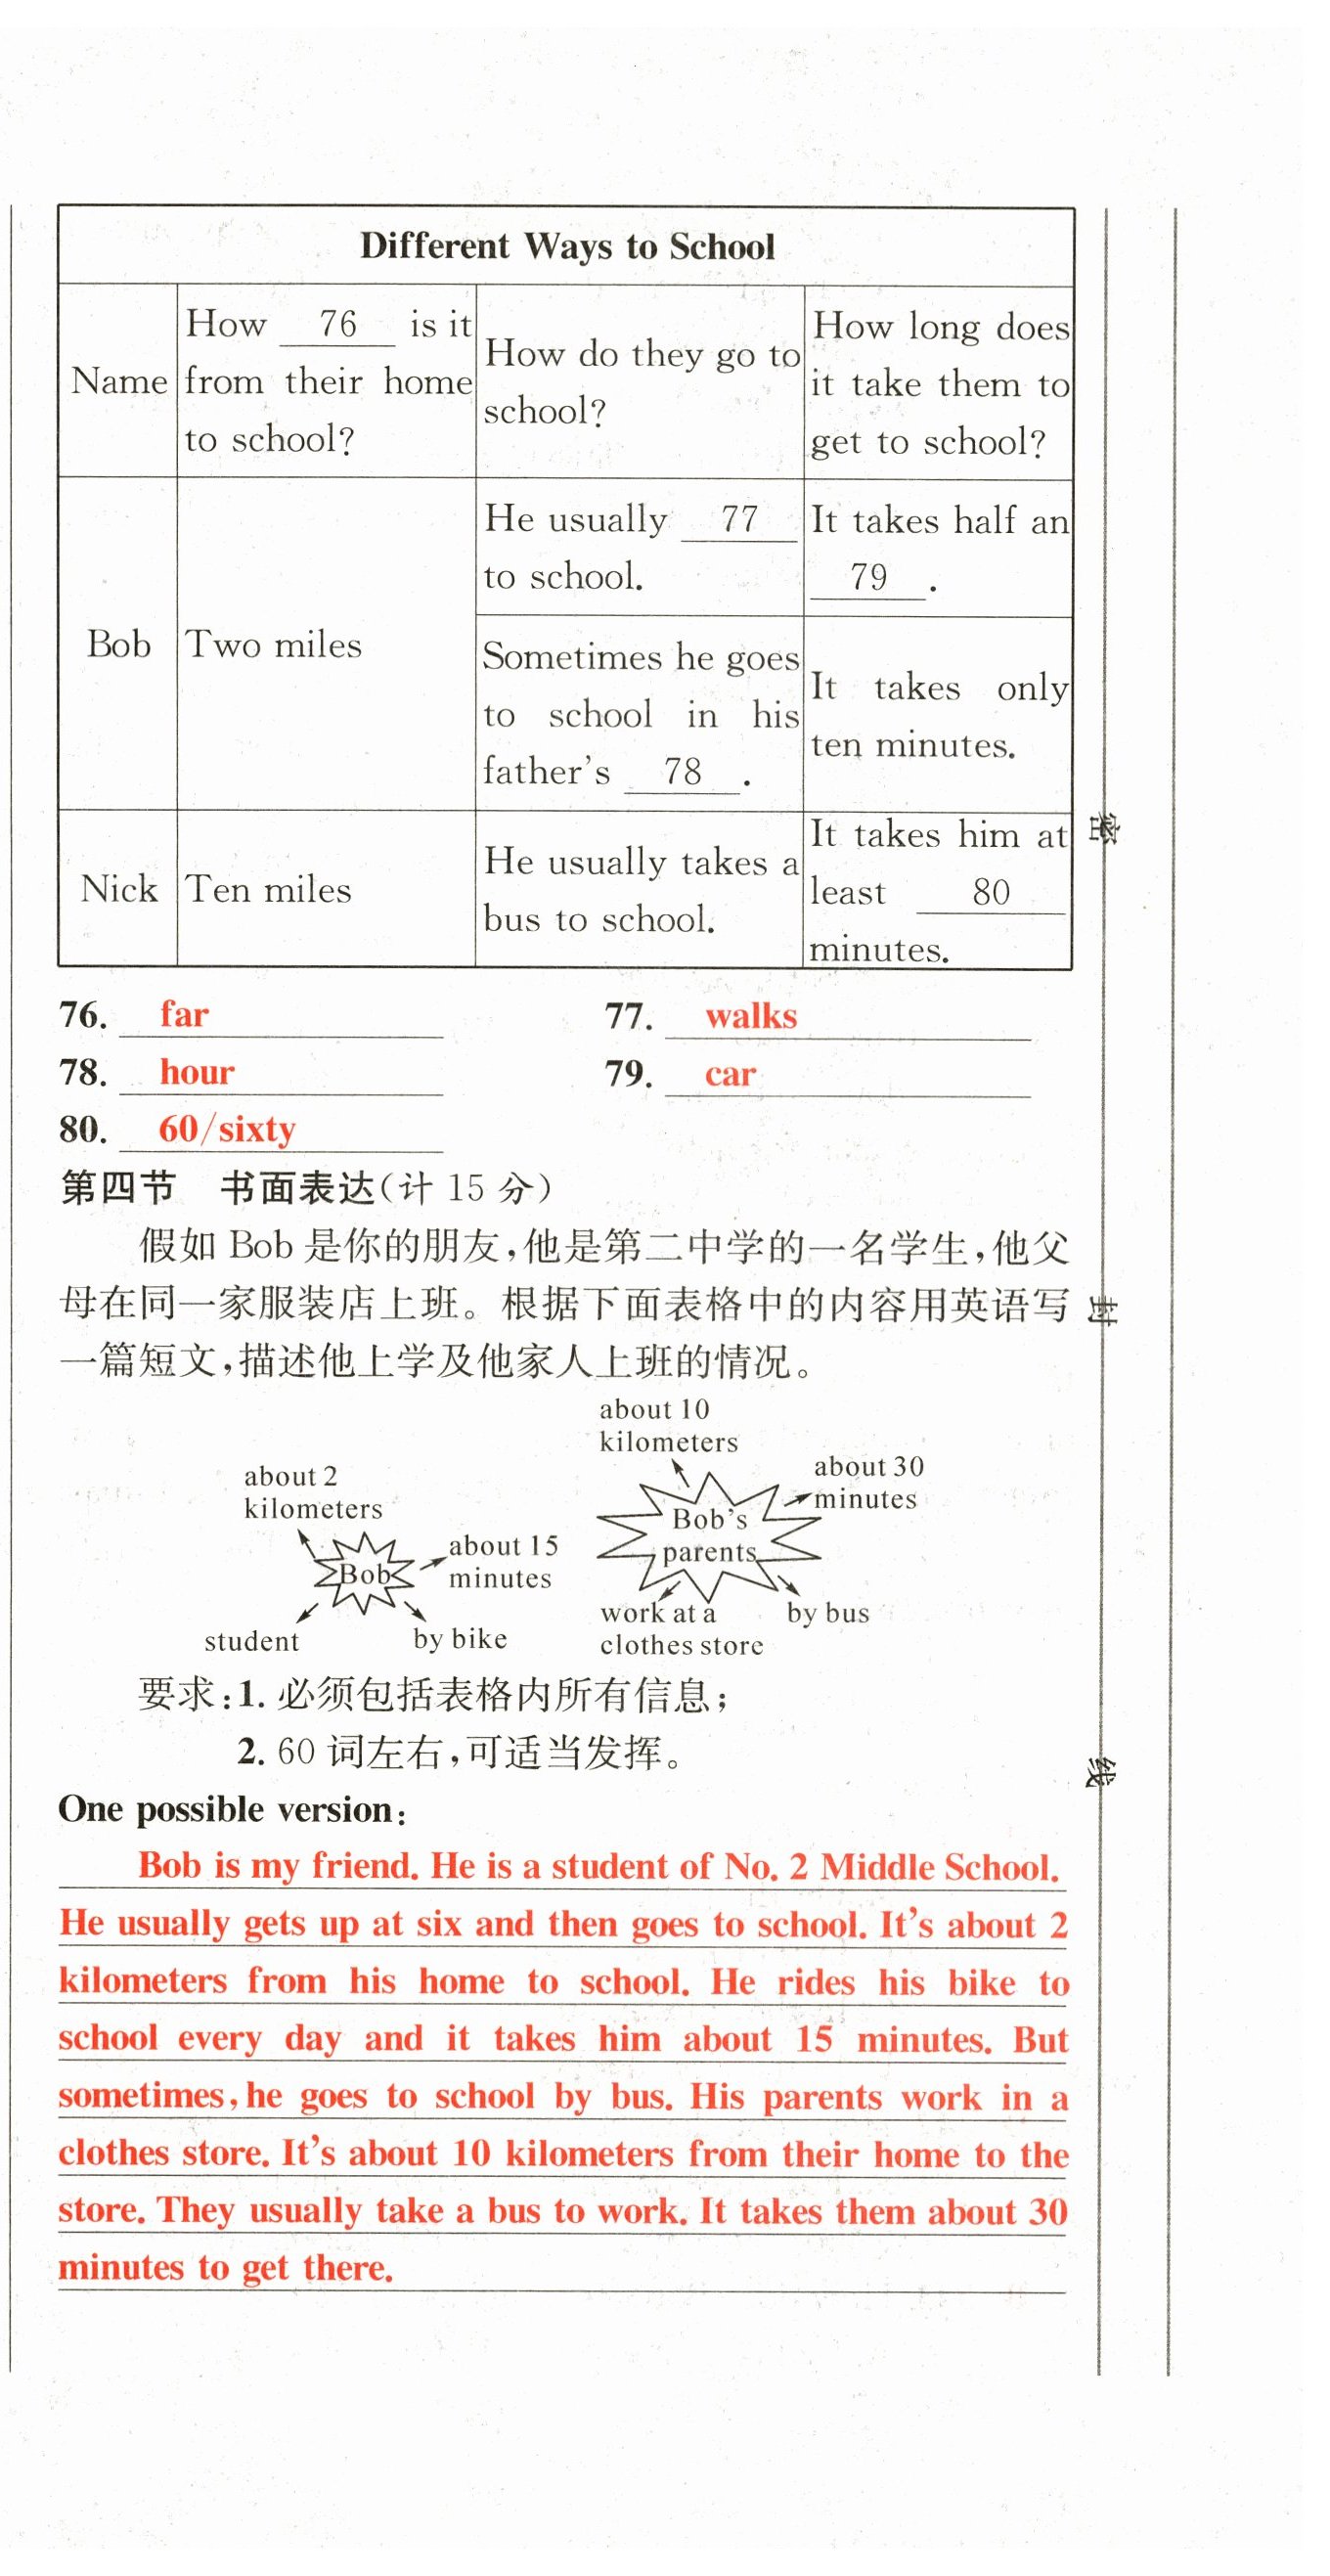 Different Ways to School
Name
How 76 is it
from their home
to school?
How do they go to
school?
How long does
it take them to
get to school?
Bob
Two miles
He usually 77
to school.
It takes half an
79 .
Sometimes he goes
to school in his
father's 78 .
It takes only
ten minutes.
Nick
Ten miles
He usually takes a
bus to school.
It takes him at
least 80
minutes.
76. far 77. walks
78. hour 79. car
80. 60/sixty
第四节 书面表达(计 15 分)
假如 Bob 是你的朋友,他是第二中学的一名学生,他父
母在同一家服装店上班。根据下面表格中的内容用英语写
一篇短文,描述他上学及他家人上班的情况。
about 2
kilometers
about 15
minutes
Bob
student
by bike
about 10
kilometers
about 30
minutes
Bob's
parents
work at a
clothes store
by bus
要求:1. 必须包括表格内所有信息;
2. 60 词左右,可适当发挥。
One possible version:
Bob is my friend. He is a student of No. 2 Middle School.
He usually gets up at six and then goes to school. It's about 2
kilometers from his home to school. He rides his bike to
school every day and it takes him about 15 minutes. But
sometimes, he goes to school by bus. His parents work in a
clothes store. It's about 10 kilometers from their home to the
store. They usually take a bus to work. It takes them about 30
minutes to get there.
密
封
线